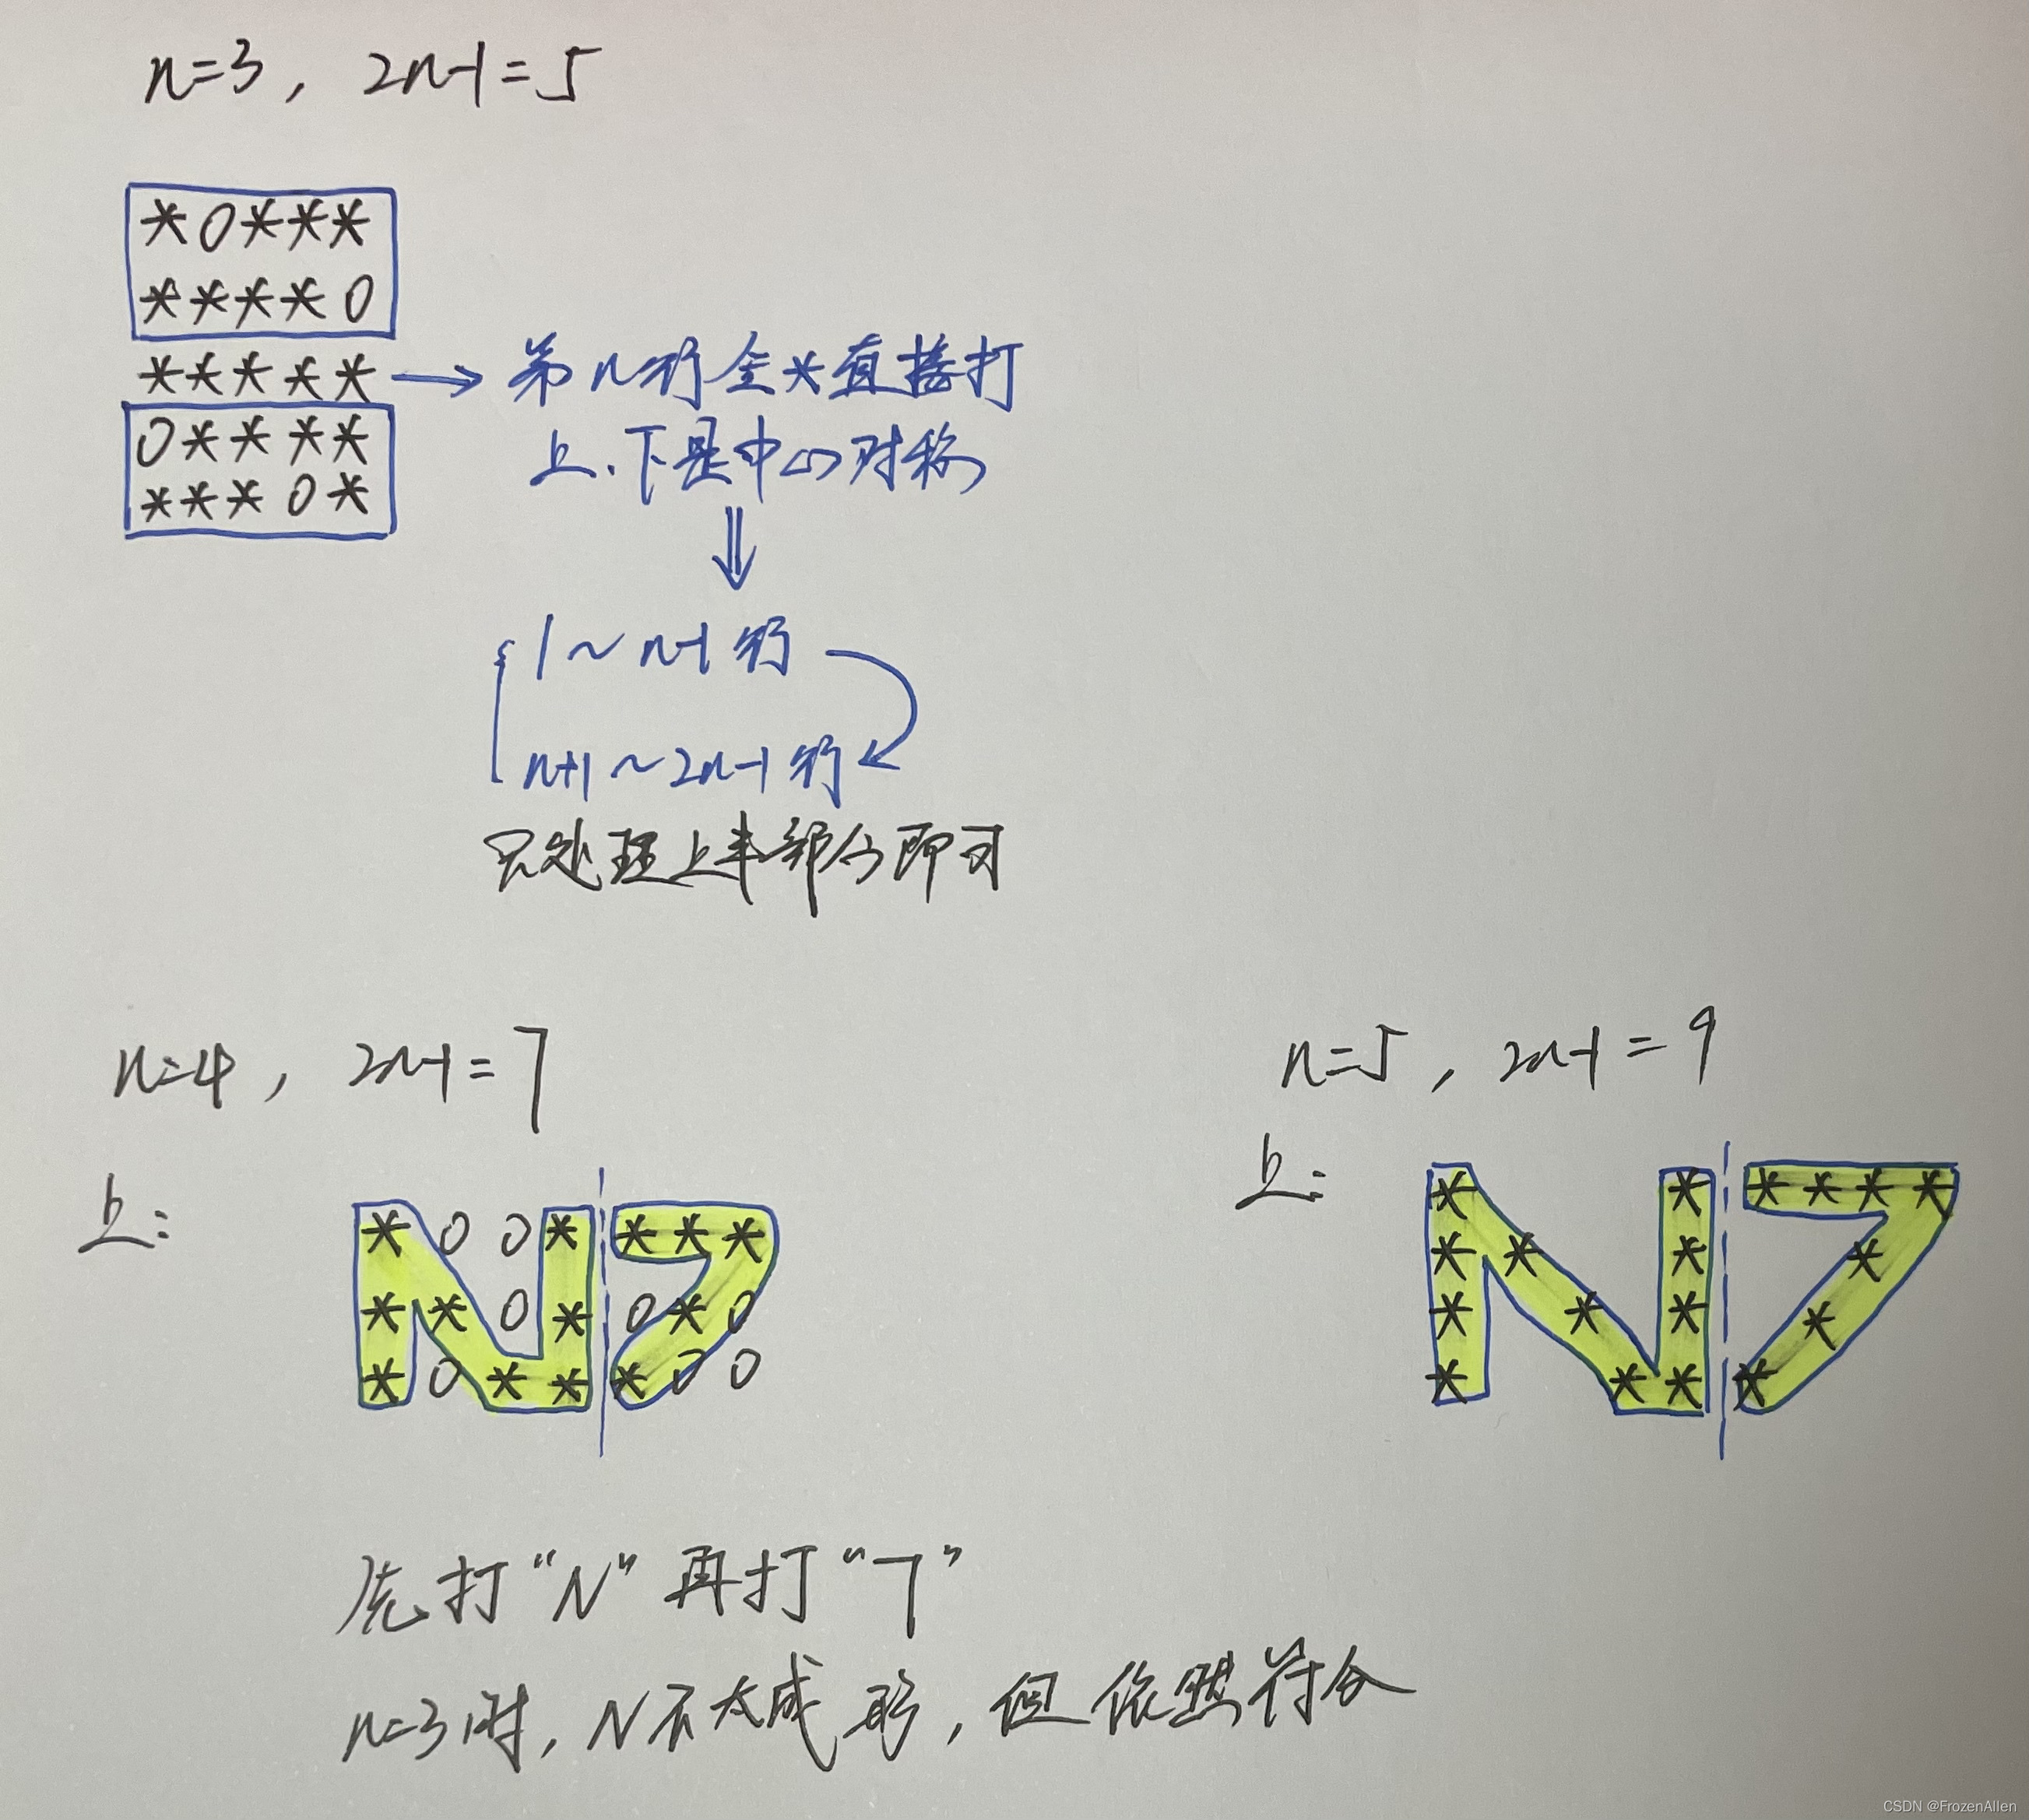 n=3, 2n-1=5
*0***
****0
***** → 第n行全*直接打
0****
上、下是中心对称
***0*
⇓
1~n-1行
n+1~2n-1行
只处理上半部分即可
n=4, 2n-1=7
n=5, 2n-1=9
上:
*00****
**0*0*0
*0***00
上:
* * ****
** * *
* * * *
* ***
先打“N”再打“7”
n=3时,N不太成形,但依然符合
CSDN @FrozenAllen